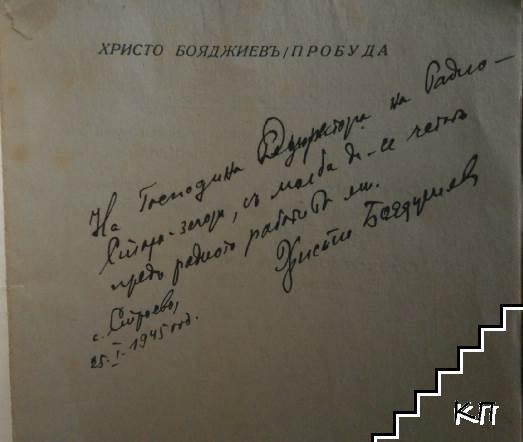 ХРИСТО БОЯДЖИЕВЪ / ПРОБУДА
На Господина Редиректора на Радио-
Стара-загора, съ молба да се четатъ
предъ радиото работитѣ ми.
Христо Бояджиев
с. Стоево,
25.I.1945 год.
КП